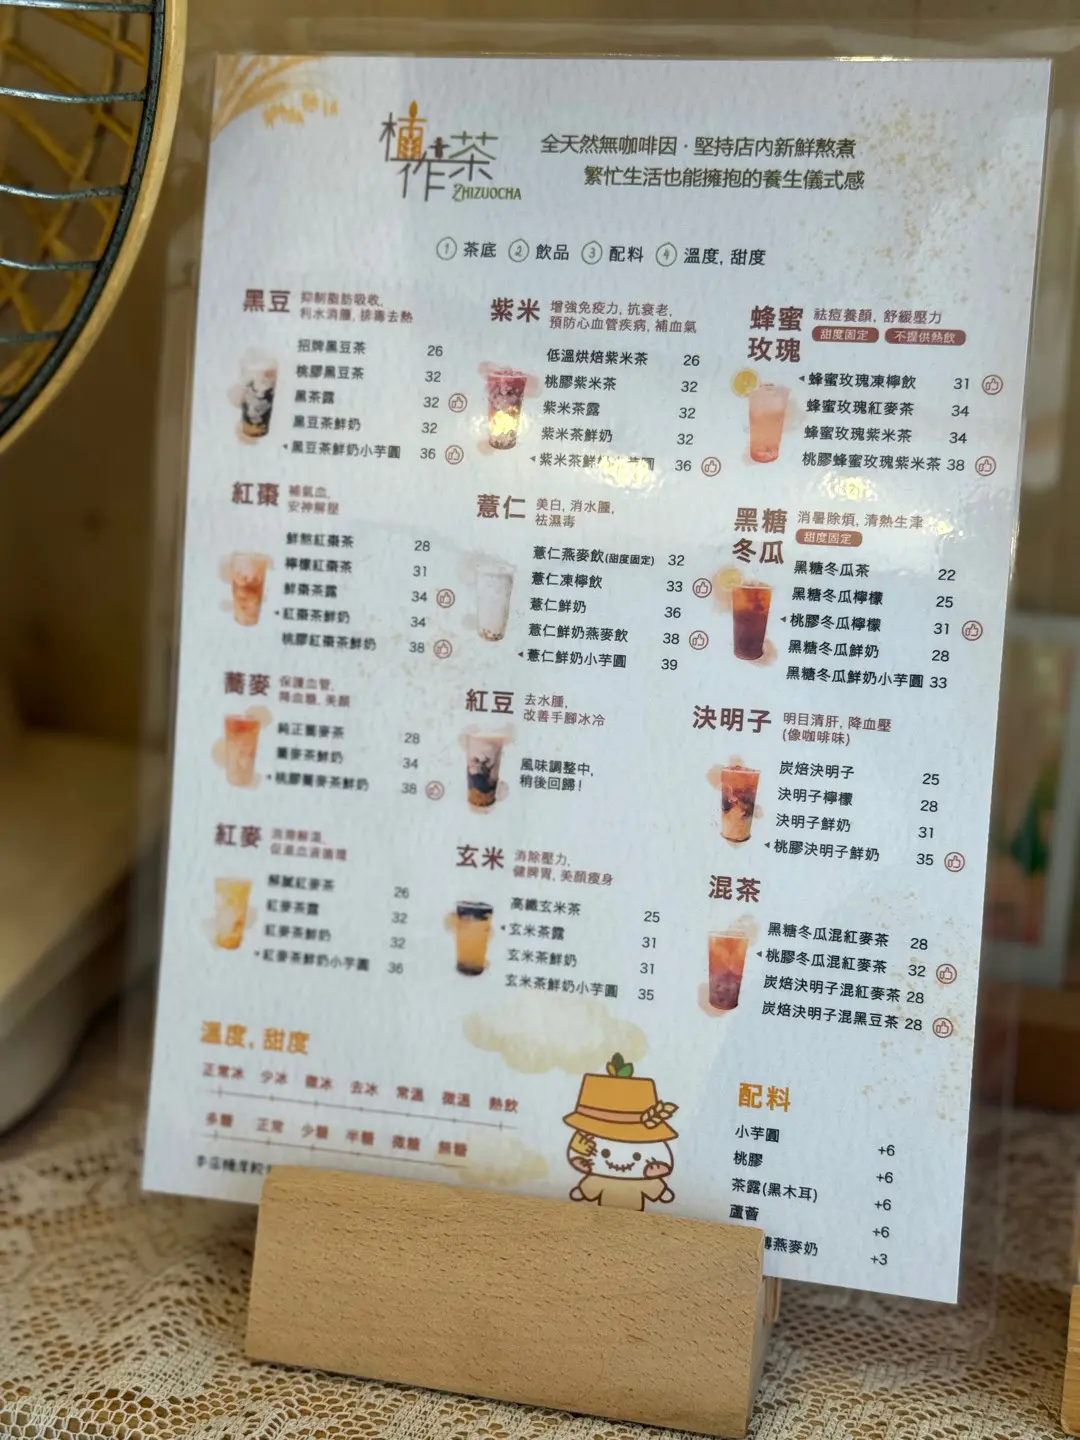 植作茶
ZHIZUOCHA
全天然無咖啡因·堅持店內新鮮熬煮
繁忙生活也能擁抱的養生儀式感
1 茶底 2 飲品 3 配料 4 溫度, 甜度
黑豆
抑制脂肪吸收,
利水消腫, 排毒去熱
招牌黑豆茶 26
桃膠黑豆茶 32
黑茶露 32
黑豆茶鮮奶 32
黑豆茶鮮奶小芋圓 36
紅棗
補氣血,
安神解壓
鮮熬紅棗茶 28
檸檬紅棗茶 31
鮮棗茶露 34
紅棗茶鮮奶 34
桃膠紅棗茶鮮奶 38
蕎麥
保護血管,
降血糖, 美顏
純正蕎麥茶 28
蕎麥茶鮮奶 34
桃膠蕎麥茶鮮奶 38
紅麥
消滯解溫,
促進血液循環
解膩紅麥茶 26
紅麥茶露 32
紅麥茶鮮奶 32
紅麥茶鮮奶小芋圓 36
紫米
增強免疫力, 抗衰老,
預防心血管疾病, 補血氣
低溫烘焙紫米茶 26
桃膠紫米茶 32
紫米茶露 32
紫米茶鮮奶 32
紫米茶鮮奶小芋圓 36
薏仁
美白, 消水腫,
祛濕毒
薏仁燕麥飲(甜度固定) 32
薏仁凍檸飲 33
薏仁鮮奶 36
薏仁鮮奶燕麥飲 38
薏仁鮮奶小芋圓 39
紅豆
去水腫,
改善手腳冰冷
風味調整中,
稍後回歸!
玄米
消除壓力,
健脾胃, 美顏瘦身
高纖玄米茶 25
玄米茶露 31
玄米茶鮮奶 31
玄米茶鮮奶小芋圓 35
蜂蜜
玫瑰
祛痘養顏, 舒緩壓力
甜度固定 不提供熱飲
蜂蜜玫瑰凍檸飲 31
蜂蜜玫瑰紅麥茶 34
蜂蜜玫瑰紫米茶 34
桃膠蜂蜜玫瑰紫米茶 38
黑糖
冬瓜
消暑除煩, 清熱生津
甜度固定
黑糖冬瓜茶 22
黑糖冬瓜檸檬 25
桃膠冬瓜檸檬 31
黑糖冬瓜鮮奶 28
黑糖冬瓜鮮奶小芋圓 33
決明子
明目清肝, 降血壓
(像咖啡味)
炭焙決明子 25
決明子檸檬 28
決明子鮮奶 31
桃膠決明子鮮奶 35
混茶
黑糖冬瓜混紅麥茶 28
桃膠冬瓜混紅麥茶 32
炭焙決明子混紅麥茶 28
炭焙決明子混黑豆茶 28
溫度, 甜度
正常冰 少冰 微冰 去冰 常溫 微溫 熱飲
多糖 正常 少糖 半糖 微糖 無糖
配料
小芋圓 +6
桃膠 +6
茶露(黑木耳) +6
蘆薈 +6
燕麥奶 +3